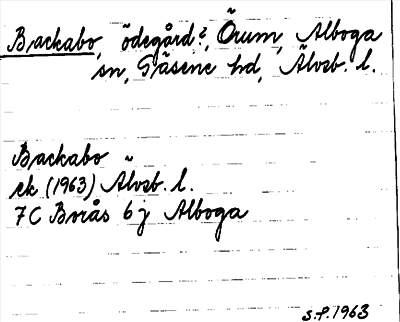 Backabo, ödegård?, Örum, Alboga
sn, Gäsene hd, Älvsb. l.
Backabo
ek (1963) Älvsb. l.
7C Borås 6j Alboga
s.f. 1963